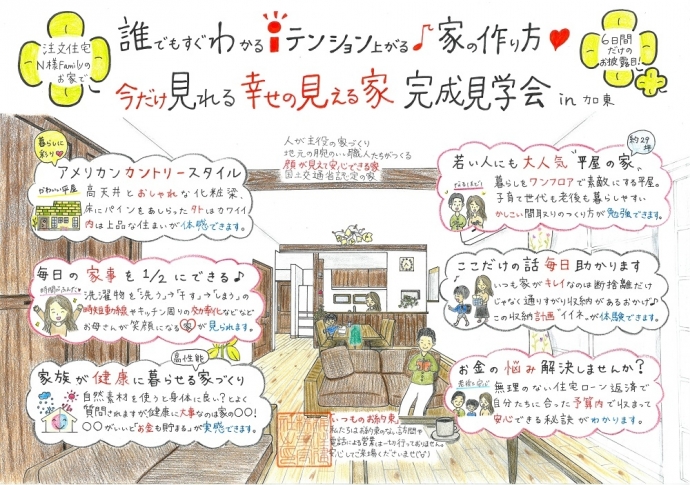 注文住宅
N様Familyの
お家で
誰でもすぐわかる！テンション上がる♪家の作り方♥
6日間
だけの
お披露目！
今だけ見れる 幸せの見える家 完成見学会 in 加東
人が主役の家づくり
地元の腕のいい職人たちがつくる
顔が見えて安心できる家
国土交通省認定の家
暮らしに
彩り♥
アメリカンカントリースタイル
かわいい平屋
高天井とおしゃれな化粧梁、
床にパインをあしらった外はカワイイ
内は上品な住まいが体感できます。
毎日の家事を1/2にできる♪
洗濯物を「洗う」→「干す」→「しまう」の
時短動線やキッチン周りの効率化などなど
お母さんが笑顔になる家が見られます。
高性能
家族が健康に暮らせる家づくり
自然素材を使うと身体に良い？とよく
質問されますが健康に大事なのは家の〇〇！
〇〇がいいと「お金も貯まる」が実感できます。
約29坪
若い人にも大人気“平屋の家”
暮らしをワンフロアで素敵にする平屋。
子育て世代も老後も暮らしやすい
かしこい間取りのつくり方が勉強できます。
ここだけの話 毎日 助かります
いつも家がキレイなのは断捨離だけ
じゃなく通りすがり収納があるおかげ♪
この収納計画“イイネ”が体験できます。
お金の悩み解決しませんか？
無理のない住宅ローン返済で
自分たちに合った予算内で収まって
安心できる秘訣がわかります。
いつものお約束
私たちはお約束のない訪問や
電話による営業は一切行っておりません。
安心してご来場くださいませ(^o^)